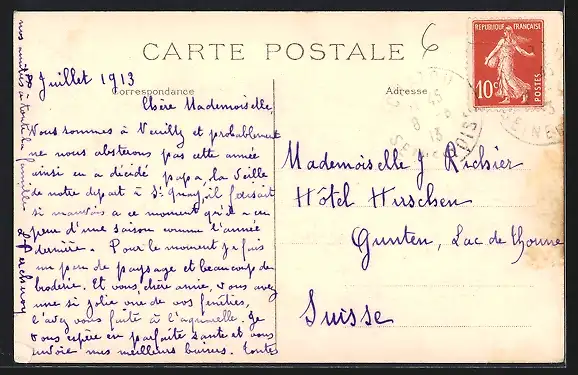 CARTE POSTALE
6
Correspondance
Adresse
RÉPUBLIQUE FRANÇAISE
10c
POSTES
8 Juillet 1913
Chère Mademoiselle,
Nous sommes à Neuilly et probablement
ne nous absterons pas cette année
ainsi en a décidé papa, la veille
de notre départ à St Quay, il faisait
si mauvais a ce moment qu'il a eu
peur d'une saison comme l'année
dernière. Pour le moment je fais
un peu de paysage et beaucoup de
broderie. Et vous chère amie, vous avez
une si jolie vue de vos fenêtres,
l'avez vous faite à l'aquarelle. Je
vous espère en parfaite santé et vous
envoie mes meilleurs baisers. Toutes
nos amitiés à toute la famille
Mademoiselle J Richier
Hôtel Hirschen
Gunten, Lac de Thoune
Suisse